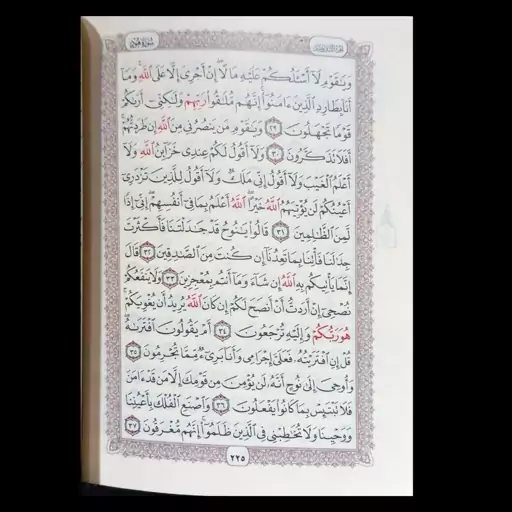 سورة هود الجزء الثاني عشر
وَيَٰقَوْمِ لَآ أَسْـَٔلُكُمْ عَلَيْهِ مَالًا ۖ إِنْ أَجْرِىَ إِلَّا عَلَى ٱللَّهِ ۚ وَمَآ
أَنَا۠ بِطَارِدِ ٱلَّذِينَ ءَامَنُوٓا۟ ۚ إِنَّهُم مُّلَٰقُوا۟ رَبِّهِمْ وَلَٰكِنِّىٓ أَرَىٰكُمْ
قَوْمًا تَجْهَلُونَ ٢٩ وَيَٰقَوْمِ مَن يَنصُرُنِى مِنَ ٱللَّهِ إِن طَرَدتُّهُمْ ۚ
أَفَلَا تَذَكَّرُونَ ٣٠ وَلَآ أَقُولُ لَكُمْ عِندِى خَزَآئِنُ ٱللَّهِ وَلَآ
أَعْلَمُ ٱلْغَيْبَ وَلَآ أَقُولُ إِنِّى مَلَكٌ وَلَآ أَقُولُ لِلَّذِينَ تَزْدَرِىٓ
أَعْيُنُكُمْ لَن يُؤْتِيَهُمُ ٱللَّهُ خَيْرًا ۖ ٱللَّهُ أَعْلَمُ بِمَا فِىٓ أَنفُسِهِمْ ۖ إِنِّىٓ إِذًا
لَّمِنَ ٱلظَّٰلِمِينَ ٣١ قَالُوا۟ يَٰنُوحُ قَدْ جَٰدَلْتَنَا فَأَكْثَرْتَ
جِدَٰلَنَا فَأْتِنَا بِمَا تَعِدُنَآ إِن كُنتَ مِنَ ٱلصَّٰدِقِينَ ٣٢ قَالَ
إِنَّمَا يَأْتِيكُم بِهِ ٱللَّهُ إِن شَآءَ وَمَآ أَنتُم بِمُعْجِزِينَ ٣٣ وَلَا يَنفَعُكُمْ
نُصْحِىٓ إِنْ أَرَدتُّ أَنْ أَنصَحَ لَكُمْ إِن كَانَ ٱللَّهُ يُرِيدُ أَن يُغْوِيَكُمْ ۚ
هُوَ رَبُّكُمْ وَإِلَيْهِ تُرْجَعُونَ ٣٤ أَمْ يَقُولُونَ ٱفْتَرَىٰهُ ۖ
قُلْ إِنِ ٱفْتَرَيْتُهُۥ فَعَلَىَّ إِجْرَامِى وَأَنَا۠ بَرِىٓءٌ مِّمَّا تُجْرِمُونَ ٣٥
وَأُوحِىَ إِلَىٰ نُوحٍ أَنَّهُۥ لَن يُؤْمِنَ مِن قَوْمِكَ إِلَّا مَن قَدْ ءَامَنَ
فَلَا تَبْتَئِسْ بِمَا كَانُوا۟ يَفْعَلُونَ ٣٦ وَٱصْنَعِ ٱلْفُلْكَ بِأَعْيُنِنَا
وَوَحْيِنَا وَلَا تُخَٰطِبْنِى فِى ٱلَّذِينَ ظَلَمُوٓا۟ ۚ إِنَّهُم مُّغْرَقُونَ ٣٧
٢٢٥